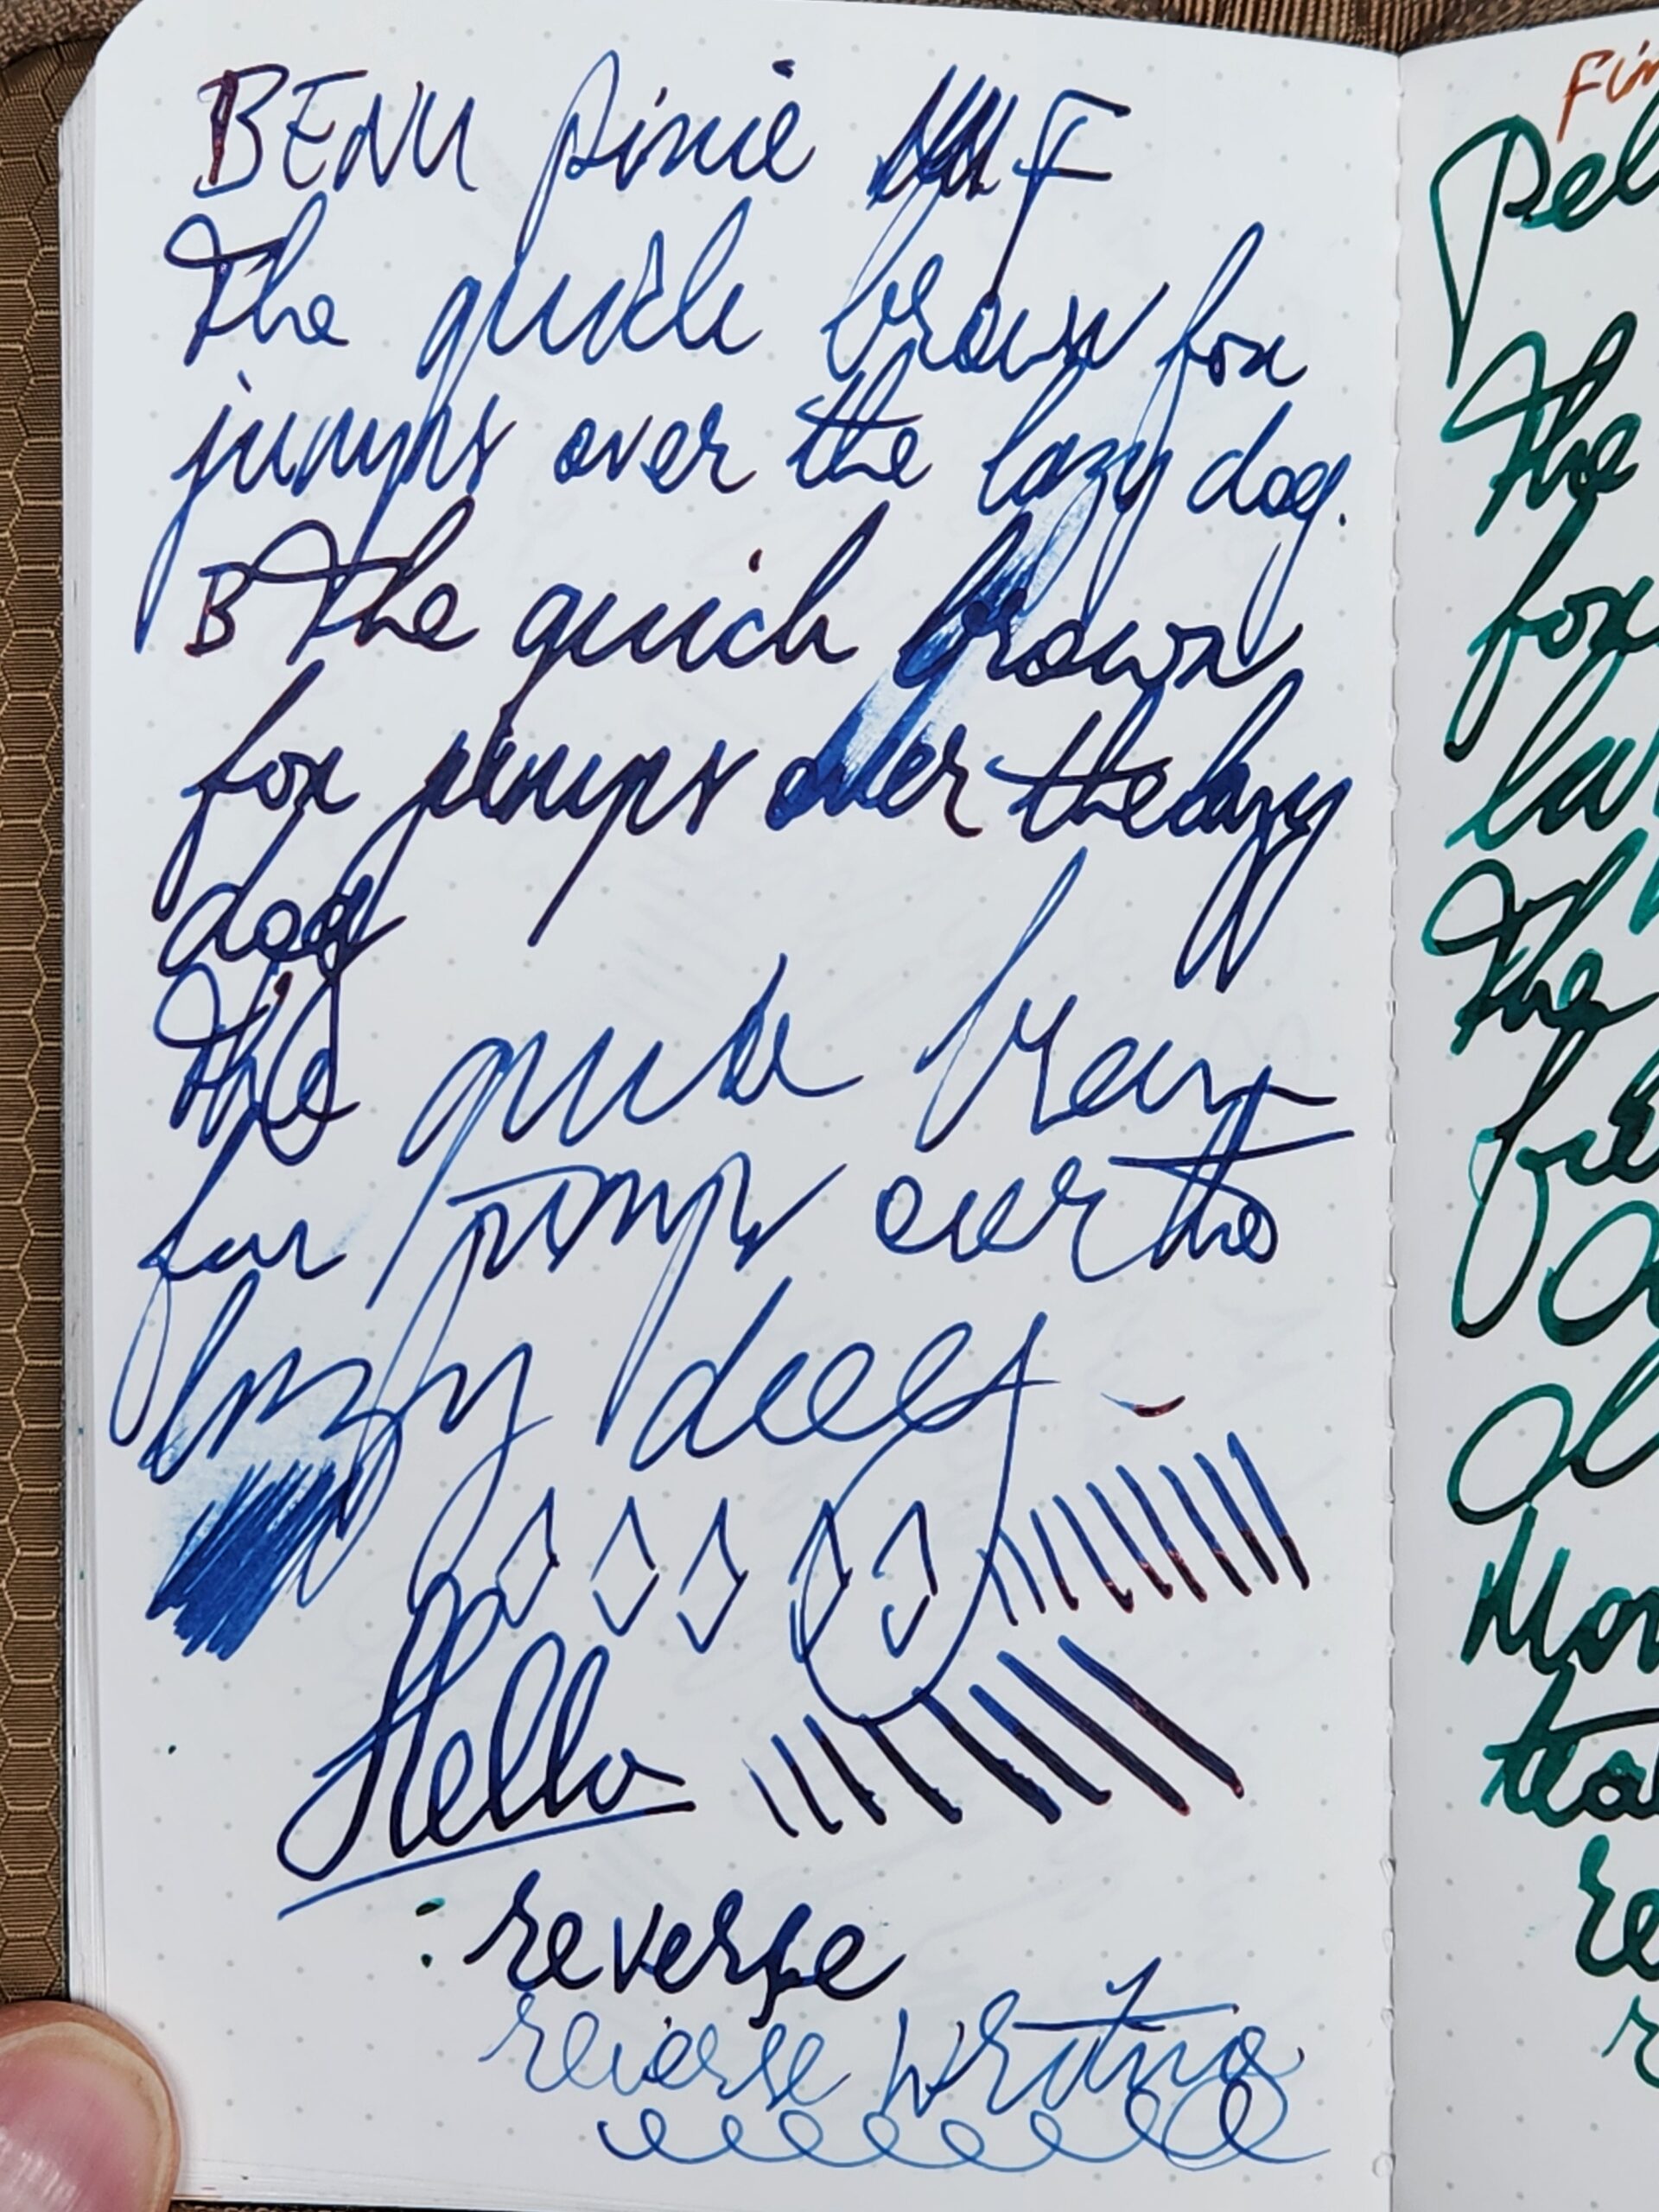 BENU pixie F
The quick brown fox
jumps over the lazy dog.
B The quick brown
fox jumps over the lazy
dog
The quick brown
fox jumps over the
lazy dog
Hello
reverse
reverse writing
Fin
Pel
The
fox
la
The
Mon